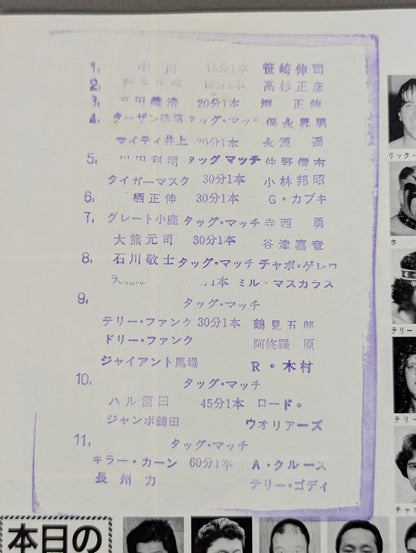 1, 小川 15分1本 笹崎伸司
2, 15分1本 高杉正彦
3, 義浩 20分1本 淵正伸
4, ターザン後藤 タッグ・マッチ 保永昇男
マイティ井上 20分1本 永源遥
5, 川田利明 タッグマッチ 仲野信市
タイガーマスク 30分1本 小林邦昭
6, 栖正伸 30分1本 G・カブキ
7, グレート小鹿 タッグ・マッチ 寺西 勇
大熊元司 30分1本 谷津嘉章
8, 石川敬士 タッグ・マッチ チャボ・ゲレロ
1本 ミル・マスカラス
9, タッグ・マッチ
テリー・ファンク 30分1本 鶴見五郎
ドリー・ファンク 阿修羅 原
ジャイアント馬場 R・木村
10, タッグ・マッチ
ハル薗田 45分1本 ロード。
ジャンボ鶴田 ウオリアーズ
11, タッグ・マッチ
キラー・カーン 60分1本 A・クルース
長州力 テリー・ゴディ
リック・
ホ
テリー
テリー
チャ
本日の